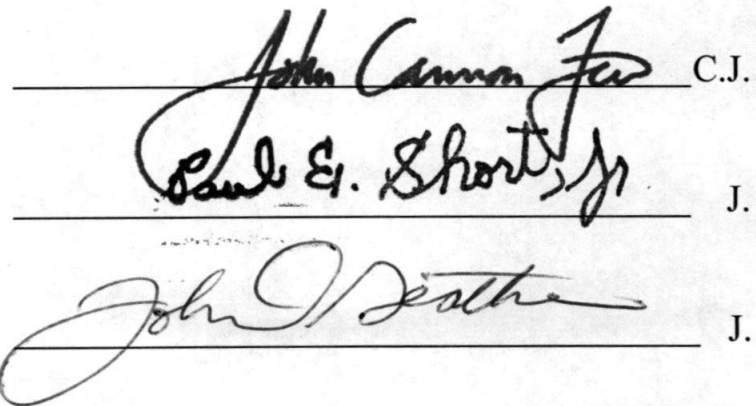 John Cannon Few C.J.
Paul E. Short, Jr J.
John D Geathers J.